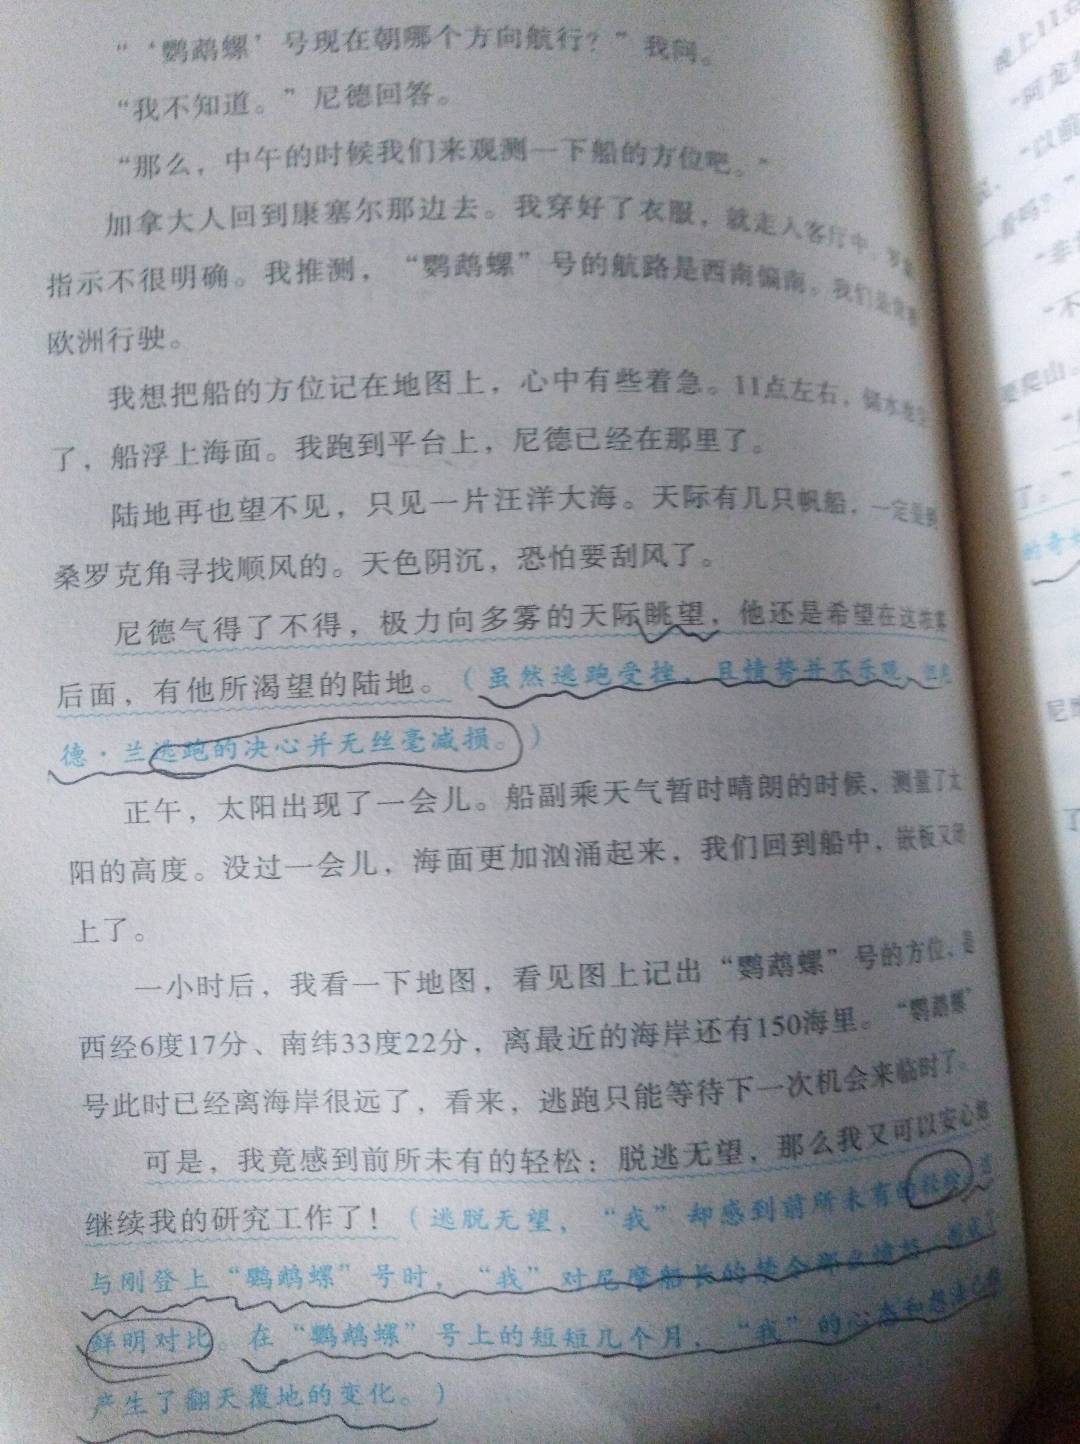 “‘鹦鹉螺’号现在朝哪个方向航行？”我问。
“我不知道。”尼德回答。
“那么，中午的时候我们来观测一下船的方位吧。”
加拿大人回到康塞尔那边去。我穿好了衣服，就走入客厅中。罗
指示不很明确。我推测，“鹦鹉螺”号的航路是西南偏南。我们是
欧洲行驶。
我想把船的方位记在地图上，心中有些着急。11点左右，储水
了，船浮上海面。我跑到平台上，尼德已经在那里了。
陆地再也望不见，只见一片汪洋大海。天际有几只帆船，一定是到
桑罗克角寻找顺风的。天色阴沉，恐怕要刮风了。
尼德气得了不得，极力向多雾的天际眺望，他还是希望在这浓雾
后面，有他所渴望的陆地。（虽然逃跑受挫，且情势并不乐观，但尼
德·兰逃跑的决心并无丝毫减损。）
正午，太阳出现了一会儿。船副乘天气暂时晴朗的时候，测量了太
阳的高度。没过一会儿，海面更加汹涌起来，我们回到船中，嵌板又闭
上了。
一小时后，我看一下地图，看见图上记出“鹦鹉螺”号的方位，是
西经6度17分、南纬33度22分，离最近的海岸还有150海里。“鹦鹉螺”
号此时已经离海岸很远了，看来，逃跑只能等待下一次机会来临时了。
可是，我竟感到前所未有的轻松：脱逃无望，那么我又可以安心地
继续我的研究工作了！（逃脱无望，“我”却感到前所未有的轻松，这
与刚登上“鹦鹉螺”号时，“我”对尼摩船长的禁令那么愤怒，形成了
鲜明对比。在“鹦鹉螺”号上的短短几个月，“我”的心态和想法已经
产生了翻天覆地的变化。）
晚上11点
“阿龙
“以前
看吗？”
“非
“不
要爬山。
了。”
的奇
尼
了